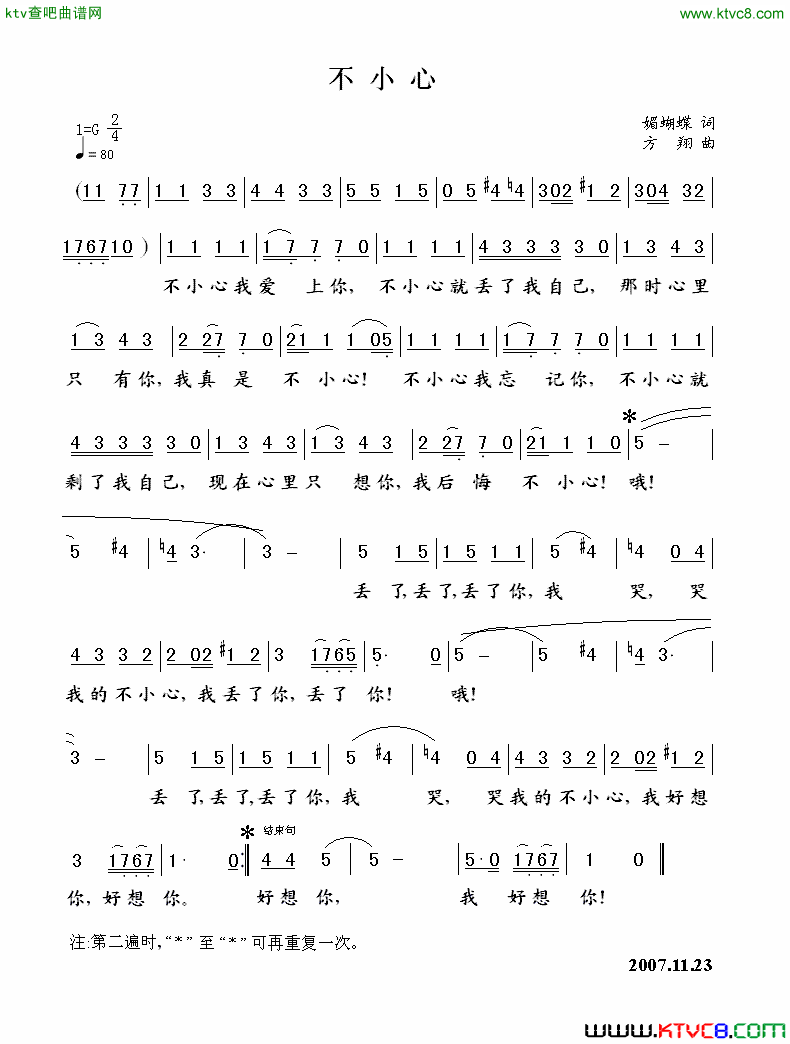 ktv查吧曲谱网 www.ktvc8.com
不小心
1=G 2/4 媚蝴蝶 词
♩=80 方翔 曲
(11 77|1 1 3 3|4 4 3 3|5 5 1 5|0 5 #4 ♮4|302 #1 2|304 32|
176710)|1 1 1 1|1 7 7 7 0|1 1 1 1|4 3 3 3 3 0|1 3 4 3|
不小心我爱 上你, 不小心就丢了我自己, 那时心里
1 3 4 3|2 27 7 0|21 1 1 05|1 1 1 1|1 7 7 7 0|1 1 1 1|
只 有你,我真是 不 小心! 不小心我忘 记你, 不小心就
4 3 3 3 3 0|1 3 4 3|1 3 4 3|2 27 7 0|21 1 1 0|* 5 -|
剩了我自己, 现在心里只 想你,我后悔 不 小心! 哦!
5 #4|♮4 3·|3 -|5 1 5|1 5 1 1|5 #4|♮4 0 4|
丢 了,丢了,丢了你,我 哭, 哭
4 3 3 2|2 02 #1 2|3 1765|5· 0|5 -|5 #4|♮4 3·|
我的不小心,我丢了你,丢了 你! 哦!
3 -|5 1 5|1 5 1 1|5 #4|♮4 0 4|4 3 3 2|2 02 #1 2|
丢 了,丢了,丢了你,我 哭, 哭我的不小心,我好想
3 1767|1· 0:‖* 结束句 4 4 5|5 -|5·0 1767|1 0‖
你,好想 你。 好想 你, 我 好想 你!
注:第二遍时,“*”至“*”可再重复一次。
2007.11.23
www.KTVC8.com